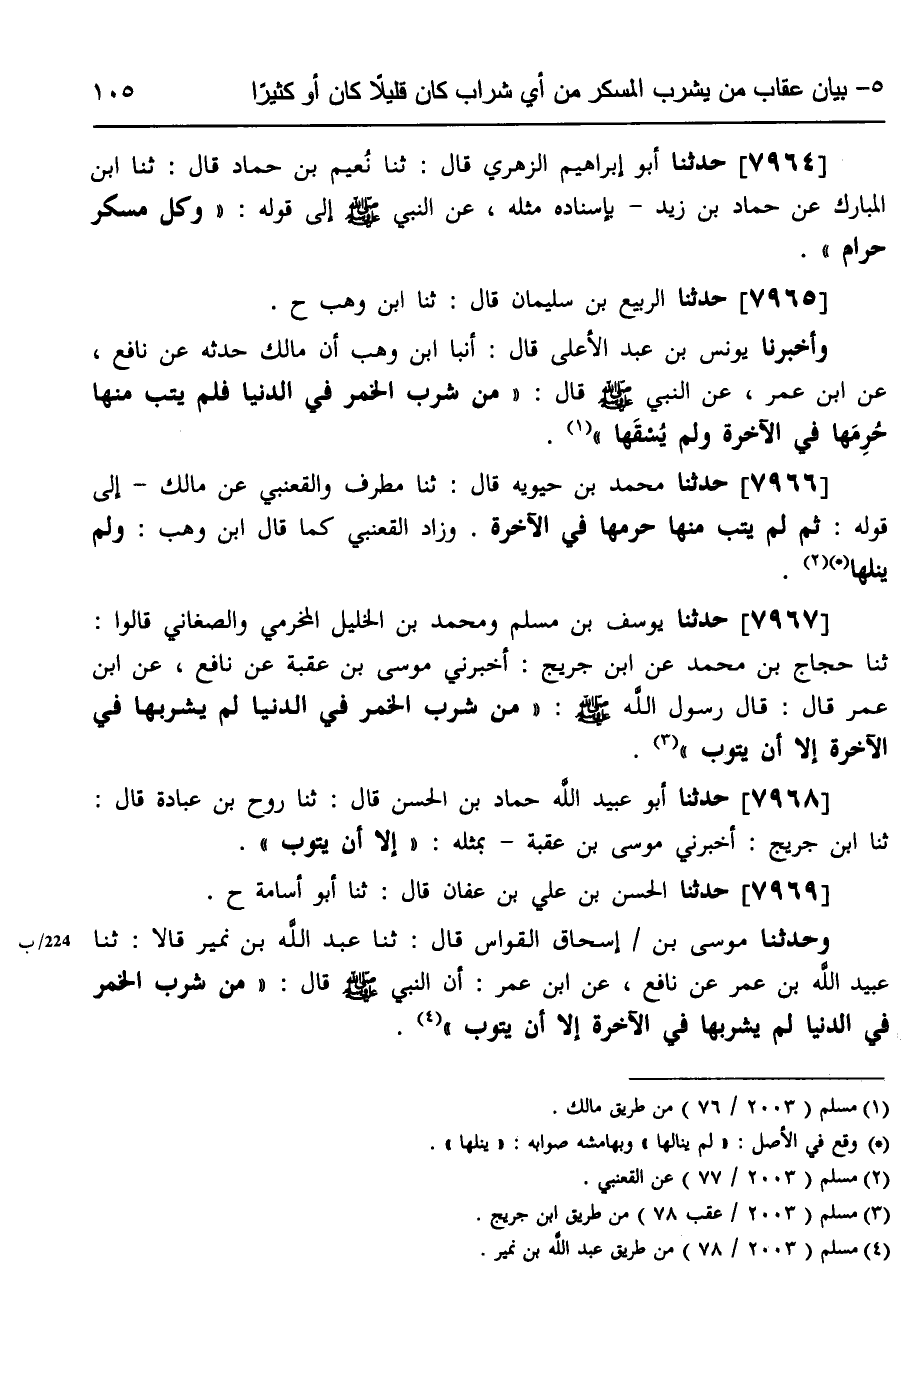 ٥- بيان عقاب من يشرب المسكر من أي شراب كان قليلًا كان أو كثيرًا ١٠٥
[٧٩٦٤] حدثنا أبو إبراهيم الزهري قال : ثنا نُعيم بن حماد قال : ثنا ابن
المبارك عن حماد بن زيد – بإسناده مثله ، عن النبي ﷺ إلى قوله : « وكل مسكر
حرام » .
[٧٩٦٥] حدثنا الربيع بن سليمان قال : ثنا ابن وهب ح .
وأخبرنا يونس بن عبد الأعلى قال : أنبا ابن وهب أن مالك حدثه عن نافع ،
عن ابن عمر ، عن النبي ﷺ قال : « من شرب الخمر في الدنيا فلم يتب منها
حُرِمَها في الآخرة ولم يُسْقَها »(١) .
[٧٩٦٦] حدثنا محمد بن حيويه قال : ثنا مطرف والقعنبي عن مالك – إلى
قوله : ثم لم يتب منها حرمها في الآخرة . وزاد القعنبي كما قال ابن وهب : ولم
ينلها(*)(٢) .
[٧٩٦٧] حدثنا يوسف بن مسلم ومحمد بن الخليل المخرمي والصغاني قالوا :
ثنا حجاج بن محمد عن ابن جريج : أخبرني موسى بن عقبة عن نافع ، عن ابن
عمر قال : قال رسول اللَّه ﷺ : « من شرب الخمر في الدنيا لم يشربها في
الآخرة إلا أن يتوب »(٣) .
[٧٩٦٨] حدثنا أبو عبيد اللَّه حماد بن الحسن قال : ثنا روح بن عبادة قال :
ثنا ابن جريج : أخبرني موسى بن عقبة – بمثله : « إلا أن يتوب » .
[٧٩٦٩] حدثنا الحسن بن علي بن عفان قال : ثنا أبو أسامة ح .
وحدثنا موسى بن / إسحاق القواس قال : ثنا عبد اللَّه بن نمير قالا : ثنا 224/ب
عبيد اللَّه بن عمر عن نافع ، عن ابن عمر : أن النبي ﷺ قال : « من شرب الخمر
في الدنيا لم يشربها في الآخرة إلا أن يتوب »(٤) .
(١) مسلم ( ٢٠٠٣ / ٧٦ ) من طريق مالك .
(*) وقع في الأصل : « لم ينالها » وبهامشه صوابه : « ينلها » .
(٢) مسلم ( ٢٠٠٣ / ٧٧ ) عن القعنبي .
(٣) مسلم ( ٢٠٠٣ / عقب ٧٨ ) من طريق ابن جريج .
(٤) مسلم ( ٢٠٠٣ / ٧٨ ) من طريق عبد اللَّه بن نمير .